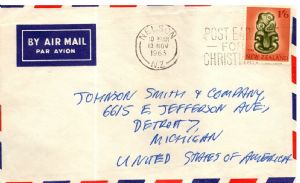 BY AIR MAIL
PAR AVION
NELSON
12 NOV
1963
N.Z.
POST EARLY
FOR
CHRISTMAS
1/6
NEW ZEALAND
JOHNSON SMITH & COMPANY,
6615 E JEFFERSON AVE,
DETROIT 7,
MICHIGAN
UNITED STATES OF AMERICA